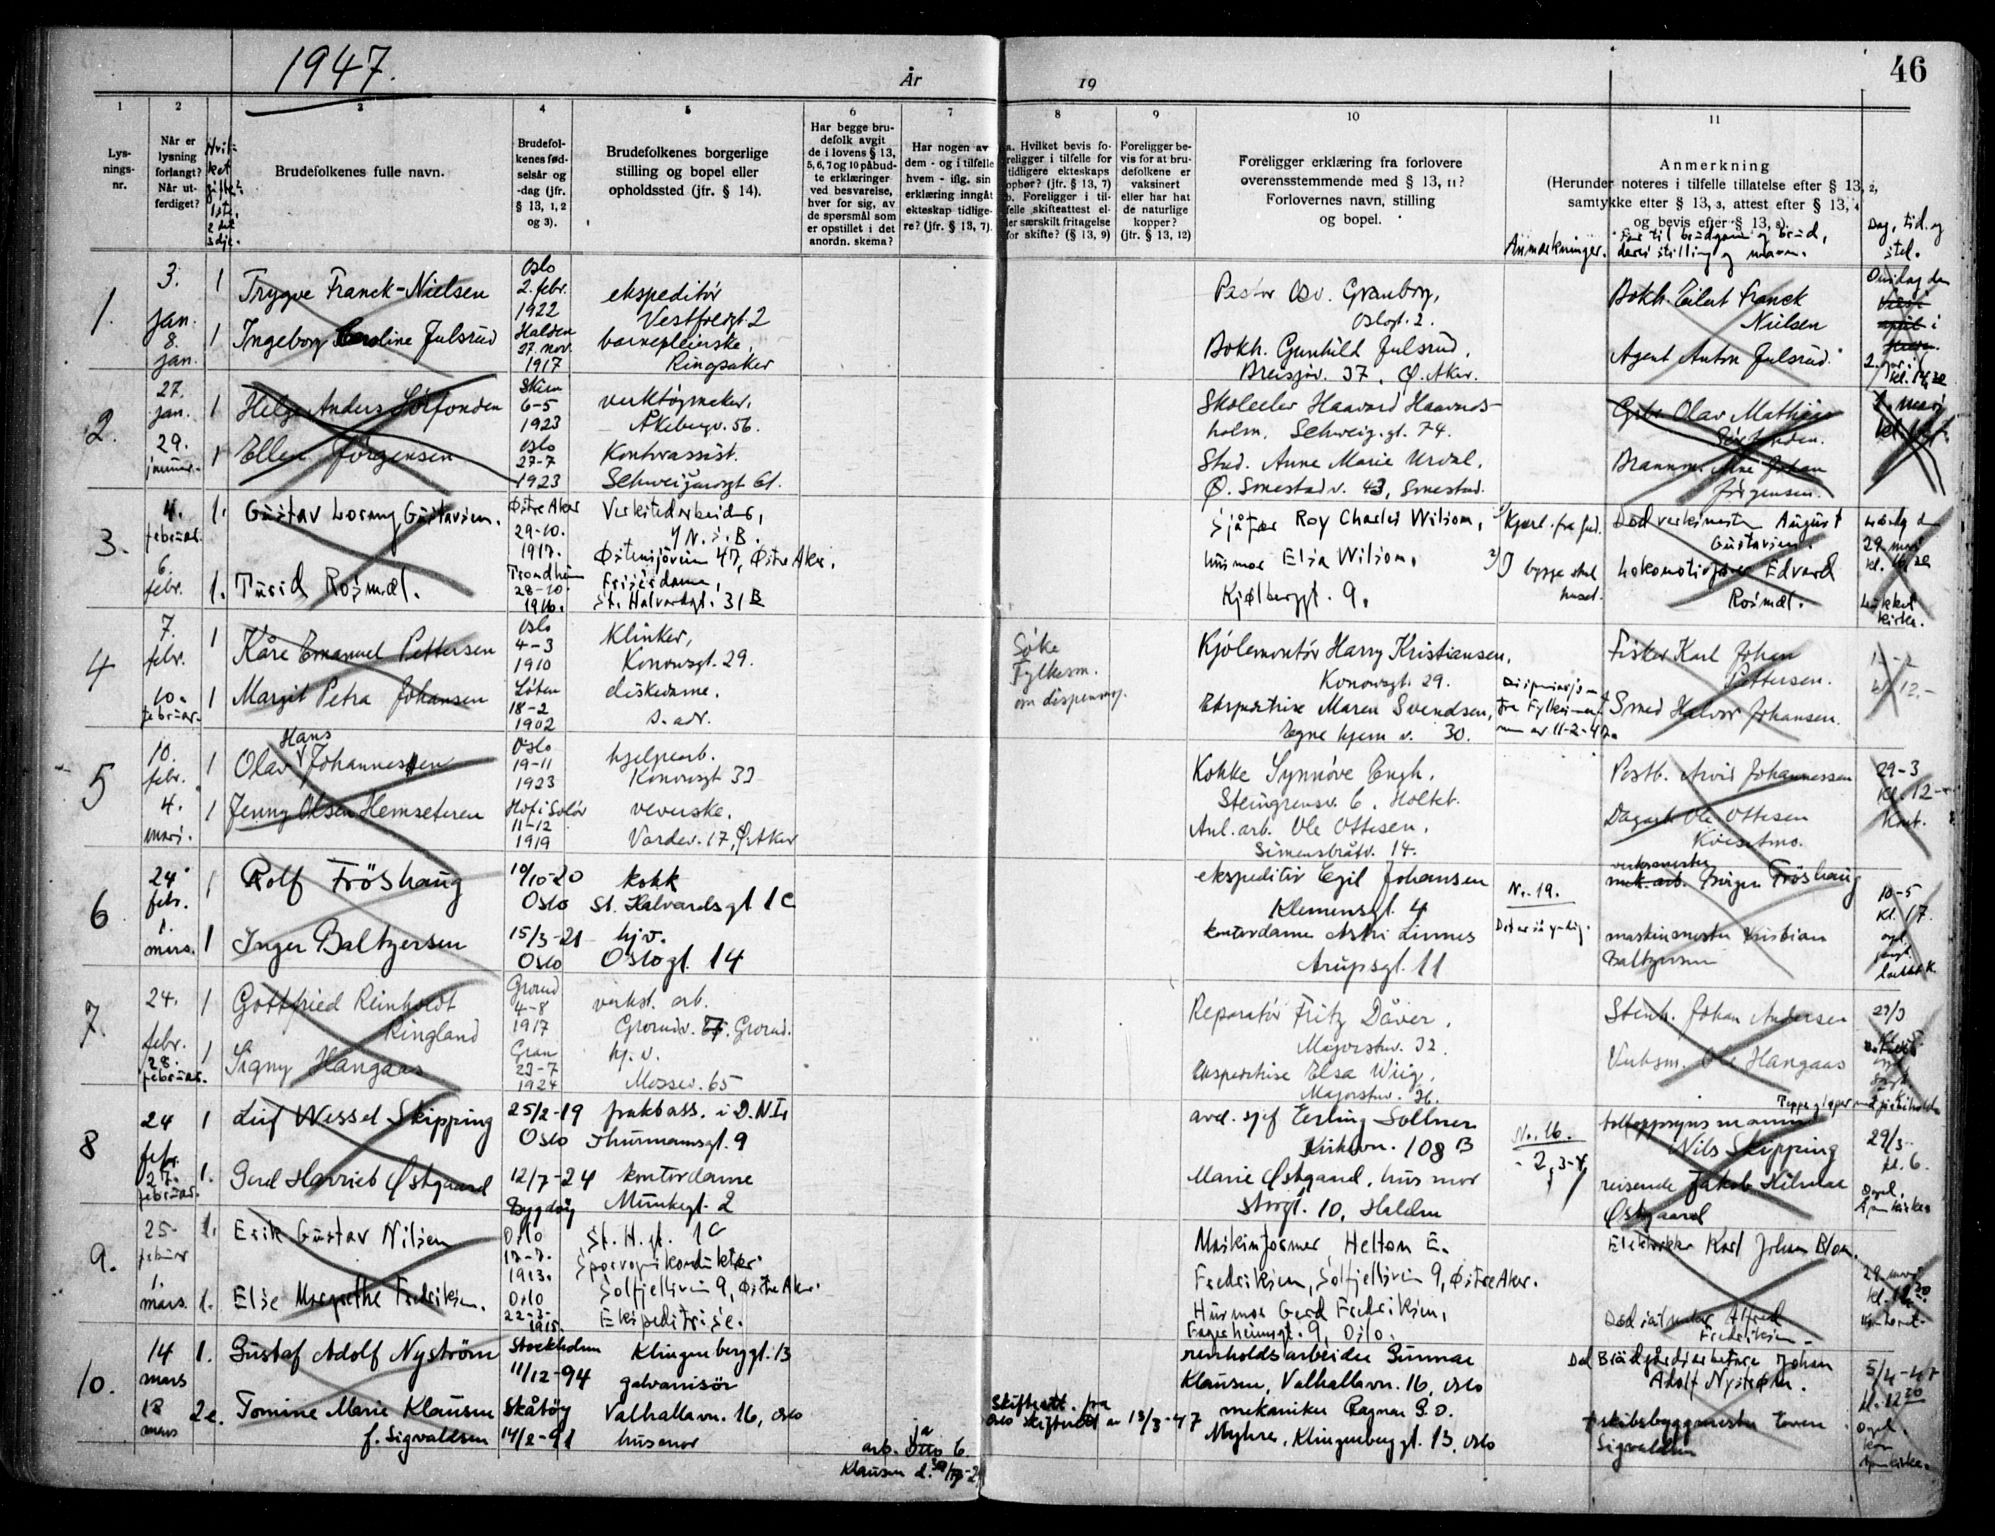 1947.
År
19
46
1
2
3
4
5
6
7
8
9
10
11
Lys-
nings-
nr.
Når er
lysning
forlangt?
Når ut-
ferdiget?
Brudefolkenes fulle navn.
Brudefol-
kenes fød-
selsår og
-dag (jfr.
§ 13, 1, 2
og 3).
Brudefolkenes borgerlige
stilling og bopel eller
opholdssted (jfr. § 14).
Har begge bru-
defolk avgit
de i lovens § 13,
5, 6, 7 og 10 påbud-
te erklæringer
ved besvarelse,
hver for sig, av
de spørsmål som
er opstillet i det
anordn. skema?
Har nogen av
dem - og i tilfelle
hvem - iflg. sin
erklæring inngått
ekteskap tidlige-
re? (jfr. § 13, 7).
a. Hvilket bevis fo-
religger i tilfelle for
tidligere ekteskaps
ophør? (jfr. § 13, 7)
b. Foreligger i til-
felle skifteattest el-
ler særskilt fritagelse
for skifte? (§ 13, 9)
Foreligger be-
vis for at bru-
defolkene er
vaksinert
eller har hat
de naturlige
kopper?
(jfr. § 13, 12)
Foreligger erklæring fra forlovere
overensstemmende med § 13, 11?
Forlovernes navn, stilling
og bopel.
Anmerkninger.
Anmerkning
(Herunder noteres i tilfelle tillatelse efter § 13, 2,
samtykke efter § 13, 3, attest efter § 13, 4
og bevis efter § 13, 8).
Far til brudgom og brud,
deres stilling og navn.
Dag, tid og
sted.
1.
3.
jan.
8.
jan.
1
Trygve Franck-Nielsen
Oslo
2. febr.
1922
ekspeditör
Vestfoldgt. 2
Pastor Osv. Granborg,
Oslogt. 2.
Bokh. Eilert Franck
Nielsen
1
Ingeborg Caroline Julsrud
Halden
27. nov.
1917
barnepleierske,
Ringsaker
Bokh. Gunhild Julsrud,
Breisjøv. 37, Ø. Aker.
Agent Anton Julsrud.
2.
27.
jan.
29.
januar.
1
Helge Anders Sörfonden
Skien
6-5
1923
verktöymaker,
Åkebergv. 56.
Skoleelev Haavard Haavards-
holm, Schweig. gt. 74.
Gbr. Olav Mathias
Sörfonden.
1
Ellen Jörgensen
Oslo
27-7
1923
Kontorassist.
Schweigaardsgt 61.
Stud. Anne Marie Urdal,
Ø. Smestadv. 43, Smestad.
Brannm. Arne Johan
Jörgensen.
3.
4.
februar.
6.
febr.
1.
Gustav Lorang Gustavsen.
Østre Aker
29-10.
1917.
Verkstedarbeider,
N.S.B.
Østensjöveien 47, Østre Aker.
Sjåfør Roy Charles Wilson,
Død verksmester August
Gustavsen.
29. mars
1.
Turid Rosmæl.
Trondheim
28-10.
1916.
Frisérdame,
St. Halvardsgt. 31 B
husmor Elsa Wilson,
Kjølberggt. 9.
Lokomotivfører Edvard
Rosmæl.
4
7.
febr.
10.
februar.
1
Kåre Emanuel Pettersen
Oslo
4-3
1910
Klinker,
Konowsgt. 29.
Söke
Fylkesm.
om dispensasj.
Kjölemontör Harry Kristiansen,
Konowsgt. 29.
Fisker Karl Johan
Pettersen.
1
Margit Petra Johansen
Löten
18-2
1902
diskedame.
s. adr.
Ekspeditrise Maren Svendsen,
Egne hjem v. 30.
Dispensasjon
fra Fylkesman-
nen av 11-2-47.
Smed Halvor Johansen.
5
10.
febr.
4.
mars.
1
Hans
Olav Johannessen
Oslo
19-11
1923
hjelpearb.
Konowsgt 33
Kokke Synnöve Engh,
Steingrensv. 6, Holtet.
Postb. Arvid Johannessen
29-3
kl. 12
1
Jenny Olsen Hemseteren
Hof i Solör
11-12
1919
veverske.
Vardev. 17, Ø. Aker
Anl. arb. Ole Ottesen,
Simensbråtv. 14.
Dagarb. Ole Ottesen
Kvesetmo.
6
24
febr.
1.
mars.
1
Rolf Fröshaug
10/10-20
Oslo
kokk
St. Halvardsgt 1 C
ekspeditör Egil Johansen
Klemensgt. 4
No. 19.
verksmester
mek. arb. Jörgen Fröshaug
10-5
kl. 17.
1
Inger Baltzersen
15/3-21
Oslo
hjv.
Oslogt. 14
kontordame Astri Linnes
Arupsgt. 11
maskinmester Kristian
Baltzersen
7.
24.
febr.
28.
februar.
1
Gottfried Reinholdt
Ringland
Grorud
4-8
1917
verkst. arb.
Reparatör Fritz Däver,
Majorstuv. 32.
Stenh. Johan Andersen
29/3
1
Signy Hangaas
Gran
23-7
1924
hj. v.
Mossev. 65
Ekspeditrise Elsa Wiig,
Majorstuv. 36.
Verksm. Ole Hangaas
8
24
febr.
27.
februar.
1
Leif Wessel Skipping
25/2-19
Oslo
fraktass. i D.N.L
Thurmannsgt. 9
avd. sjef Erling Sollner
Kirkevn. 108 B
No. 16.
tolloppsynsmann
Nils Skipping
29/3-
kl. 6.
1.
Gerd Harriet Østgaard
12/7-24
Bygdöy
kontordame
Munkegt. 2
Marie Østgaard, husmor
Storgt. 10, Halden
reisende Jakob Hilmar
Østgaard
9.
25.
februar
1.
mars.
1.
Erik Gustav Nilsen
Oslo
1913.
St. H. gt. 1 C
Sporveiskonduktør.
Maskinformer, Helton E.
Fredriksen, Solfjellveien 9, Østre Aker.
Elektriker Karl Johan Blom.
1.
Else Margrethe Fredriksen.
Oslo
22-3-
1915.
Solfjellveien 9, Østre Aker.
Ekspeditrise.
Husmor Gerd Fredriksen,
Fagerheimsgt. 9, Oslo.
Alfred
Fredriksen.
10.
14
mars
18
mars
1.
Gustaf Adolf Nyström
Stockholm
11/12-94
Klingenberggt. 13
galvanisör
renholdsarbeider Gunnar
Klausen, Valhallavn. 16, Oslo
Død Brädgårdsarbetare Johan
Adolf Nyström.
5/4-47
2e.
Tomine Marie Klausen
f. Sigvaldsen
Skåtöy
14/2-91
Valhallavn. 16, Oslo
husmor
ja
arb. Otto E.
Klausen
Skifteatt. fra
Oslo skifterett av 13/3-47
mekaniker Ragnar G. O.
Myhre, Klingenberggt. 13, Oslo
skibsbyggmester
Sigvaldsen